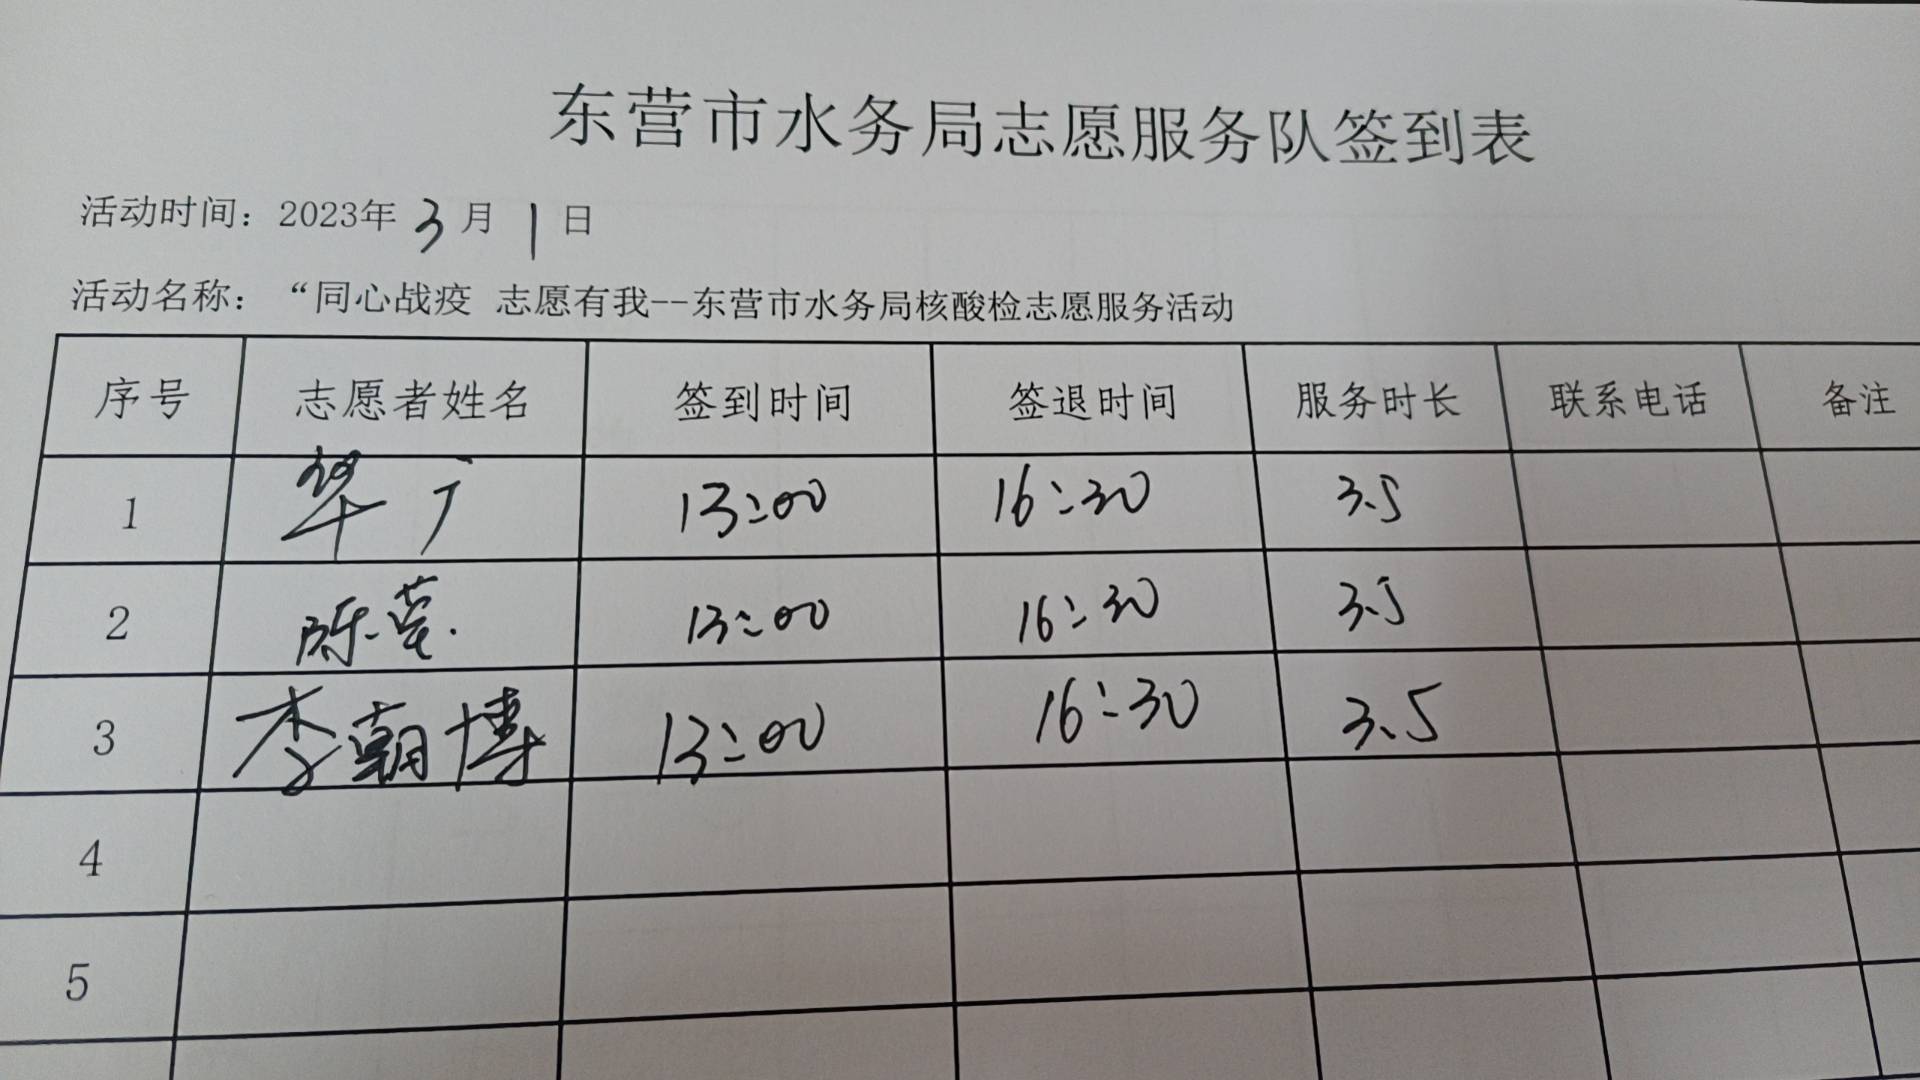 东营市水务局志愿服务队签到表
活动时间：2023年 3 月 1 日
活动名称：“同心战疫 志愿有我--东营市水务局核酸检志愿服务活动
序号 志愿者姓名 签到时间 签退时间 服务时长 联系电话 备注
1 13:00 16:30 3.5
2 陈莹 13:00 16:30 3.5
3 李朝博 13:00 16:30 3.5
4
5